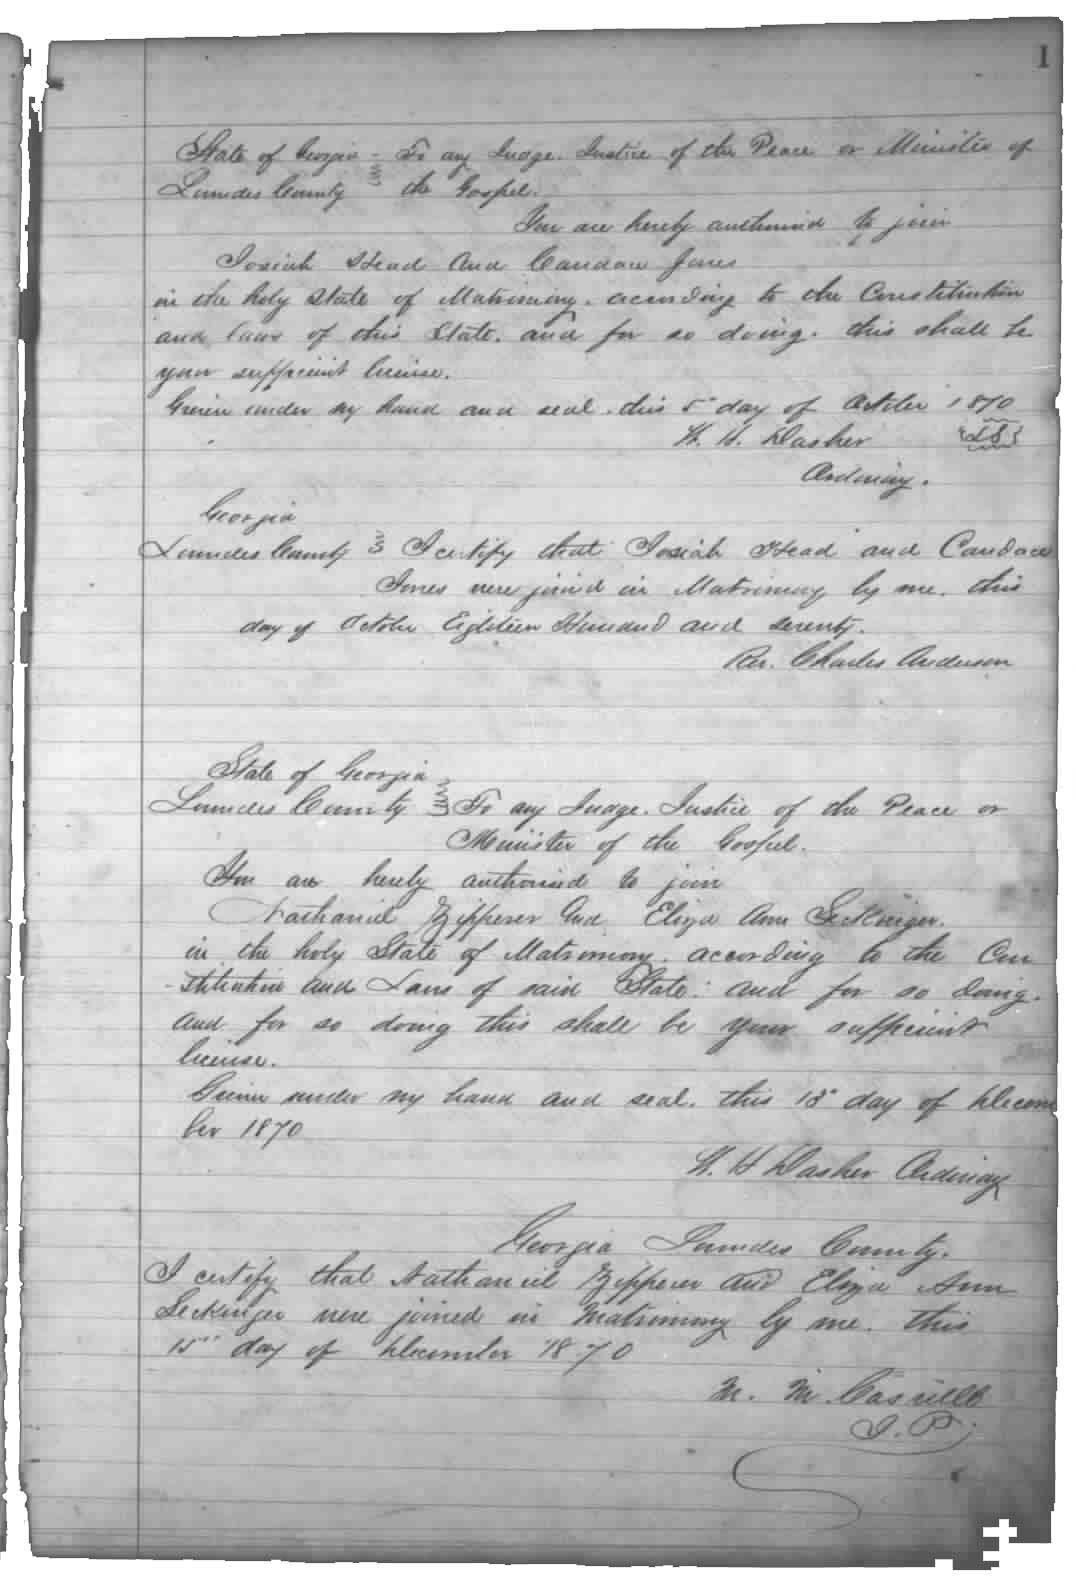 1
State of Georgia - To any Judge. Justice of the Peace or Minister of
Lowndes County the Gospel.
You are hereby authorized to join
Josiah Head And Candace Jones
in the holy State of Matrimony. according to the Constitution
and laws of this State. and for so doing. this shall be
your sufficient license.
Given under my hand and seal. this 5" day of October 1870
W. H. Dasher {LS}
Ordinary.
Georgia
Lowndes County I certify that Josiah Head and Candace
Jones were joined in Matrimony by me. this
day of October Eighteen Hundred and seventy.
Rev. Charles Anderson
State of Georgia
Lowndes County To any Judge. Justice of the Peace or
Minister of the Gospel.
You are hereby authorized to join
Nathaniel Zipperer And Eliza Ann Seckinger.
in the holy State of Matrimony. according to the Con
-stitution and Laws of said State: and for so doing.
and for so doing this shall be your sufficient
license.
Given under my hand and seal. this 13" day of Decem
ber 1870
W. H Dasher Ordinary
Georgia Lowndes County.
I certify that Nathaniel Zipperer and Eliza Ann
Seckinger were joined in Matrimony by me. this
15" day of December 1870
M. M.
J. P.